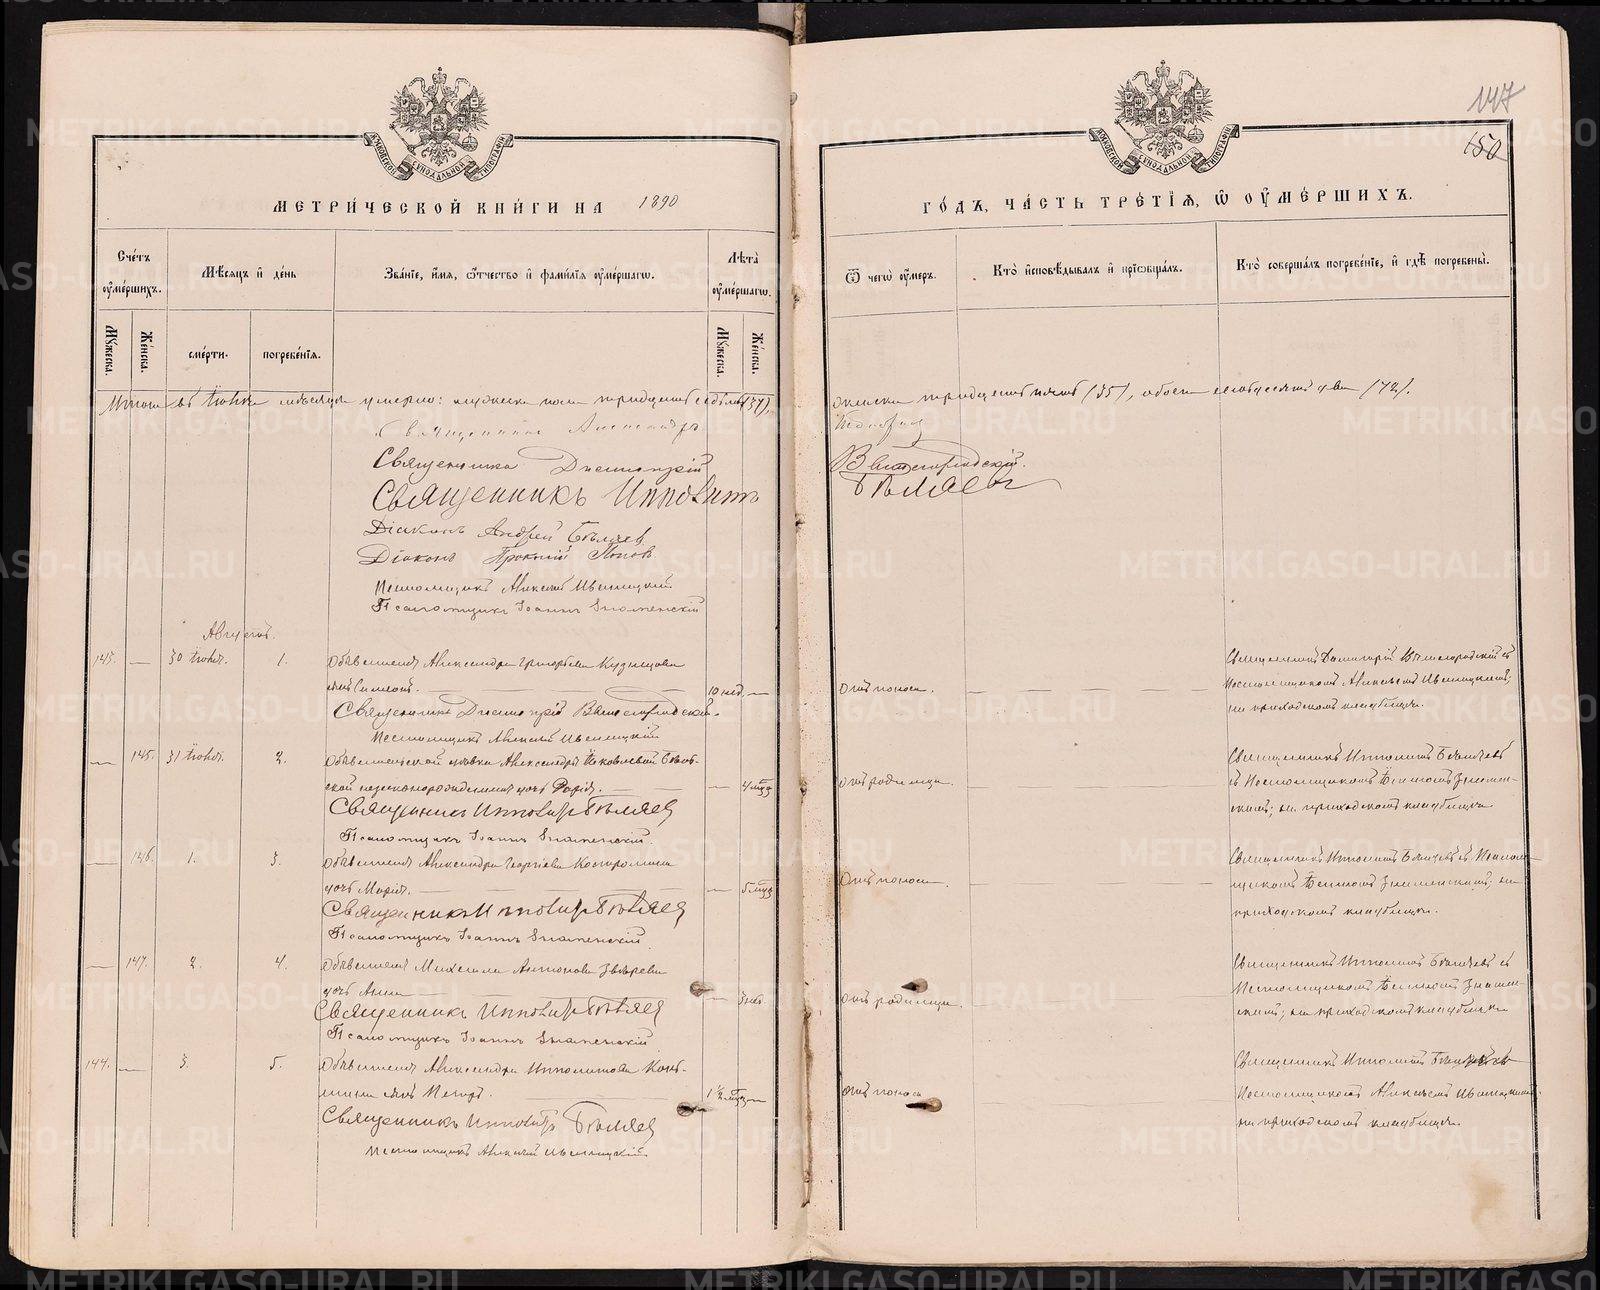 МЕТРИ́ЧЕСКОЙ КНИ́ГИ НА 1890
Сче́тъ ѹ҆ме́ршихъ.
Мѣсяцъ и҆ де́нь
Зва́нїе, и҆́мя, ѻ҆́тчество и҆ фами́лїя ѹ҆ме́ршагѡ.
Лѣта̀ ѹ҆ме́ршагѡ.
Мꙋ́жеска.
Же́нска.
сме́рти.
погребе́нїя.
Мꙋ́жеска.
Же́нска.
Итого въ Іюлѣ мѣсяцѣ умерло: мужеска пола тридцать семь (37),
Священникъ Александръ
Священникъ Димитрій
Священникъ Ипполитъ
Діаконъ Андрей Бѣляев
Діаконъ Прокопій Попов
Псаломщикъ Алексѣй
Псаломщикъ Іоаннъ Знаменскій
Августъ.
143. — 30 Іюля. 1.
Обывателя Александра Григорьева Кузнецова
сынъ Симеонъ. 10 нед. —
Священникъ Димитрій Вышегородскій.
Псаломщикъ Алексѣй
— 145. 31 Іюля. 2.
Обывательской дѣвки Александры Яковлевой
незаконнорожденная дочь Марія. — 4 мѣс.
Священникъ Ипполитъ Бѣляев
Псаломщикъ Іоаннъ Знаменскій.
— 146. 1. 3.
Обывателя Александра Георгіева Костромина
дочь Марія. — 5 мѣс.
Священникъ Ипполитъ Бѣляев
Псаломщикъ Іоаннъ Знаменскій.
— 147. 2. 4.
Обывателя Михаила Антонова Звѣрева
дочь Анна — 3 нед.
Священникъ Ипполитъ Бѣляев
Псаломщикъ Іоаннъ Знаменскій.
144. — 3. 5.
Обывателя Александра Ипполитова
сынъ Петръ. 1½ мѣс. —
Священникъ Ипполитъ Бѣляев
Псаломщикъ Алексѣй
147
150
ГО́ДЪ, ЧА́СТЬ ТРЕ́ТЇѦ, Ѡ҆ ОУ҆МЕ́РШИХЪ.
Ѿ чегѡ̀ ѹ҆́меръ.
Кто̀ и҆сповѣ́дывалъ и҆ прїѡбща́лъ.
Кто̀ соверша́лъ погребе́нїе, и҆ гдѣ̀ погребены̀.
женска тридцать пять (35), обоего семьдесят два (72).
Вышегородскій.
Бѣляевъ
Отъ поноса.
Священникъ Димитрій Вышегородскій съ
Псаломщикомъ Алексѣемъ
на приходскомъ кладбищѣ.
Отъ родимца.
Священникъ Ипполитъ Бѣляевъ
съ Псаломщикомъ Іоанномъ Знамен-
скимъ; на приходскомъ кладбищѣ.
Отъ поноса.
Священникъ Ипполитъ Бѣляевъ съ Псалом-
щикомъ Іоанномъ Знаменскимъ; на
приходскомъ кладбищѣ.
Отъ родимца.
Священникъ Ипполитъ Бѣляевъ съ
Псаломщикомъ Іоанномъ Знамен-
скимъ; на приходскомъ кладбищѣ
Отъ поноса
Священникъ Ипполитъ Бѣляевъ съ
Псаломщикомъ Алексѣемъ
на приходскомъ кладбищѣ.
METRIKI.GASO-URAL.RU